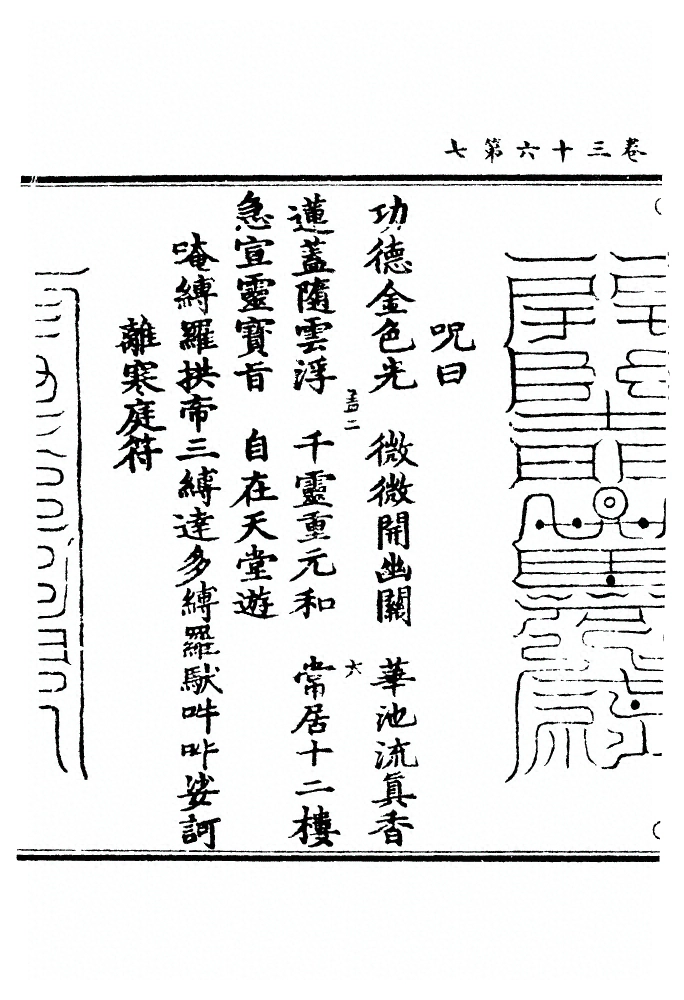 卷三十六第七
呪曰
功德金色光　微微開幽關　華池流真香
蓮蓋隨雲浮　千靈重元和　常居十二樓
急宣靈寶旨　自在天堂遊
唵縛羅拱帝三縛達多縛羅馱吽吽娑訶
離寒庭符
孟二
六